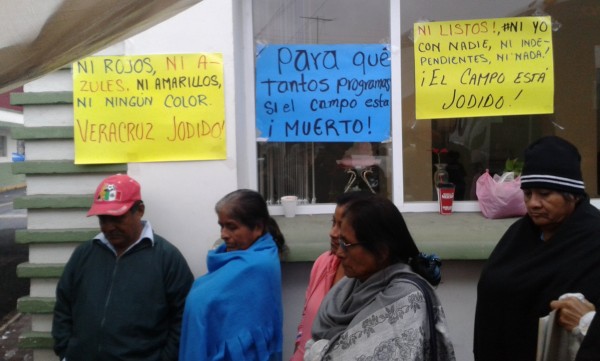 NI ROJOS, NI A-
ZULES, NI AMARILLOS,
NI NINGÚN COLOR.
VERACRUZ JODIDO!
Para qué
tantos programas
Si el campo esta
¡MUERTO!
NI LISTOS!, #NI YO
CON NADIE, NI INDE-
PENDIENTES, NI NADA!
¡EL CAMPO ESTÁ
JODIDO!